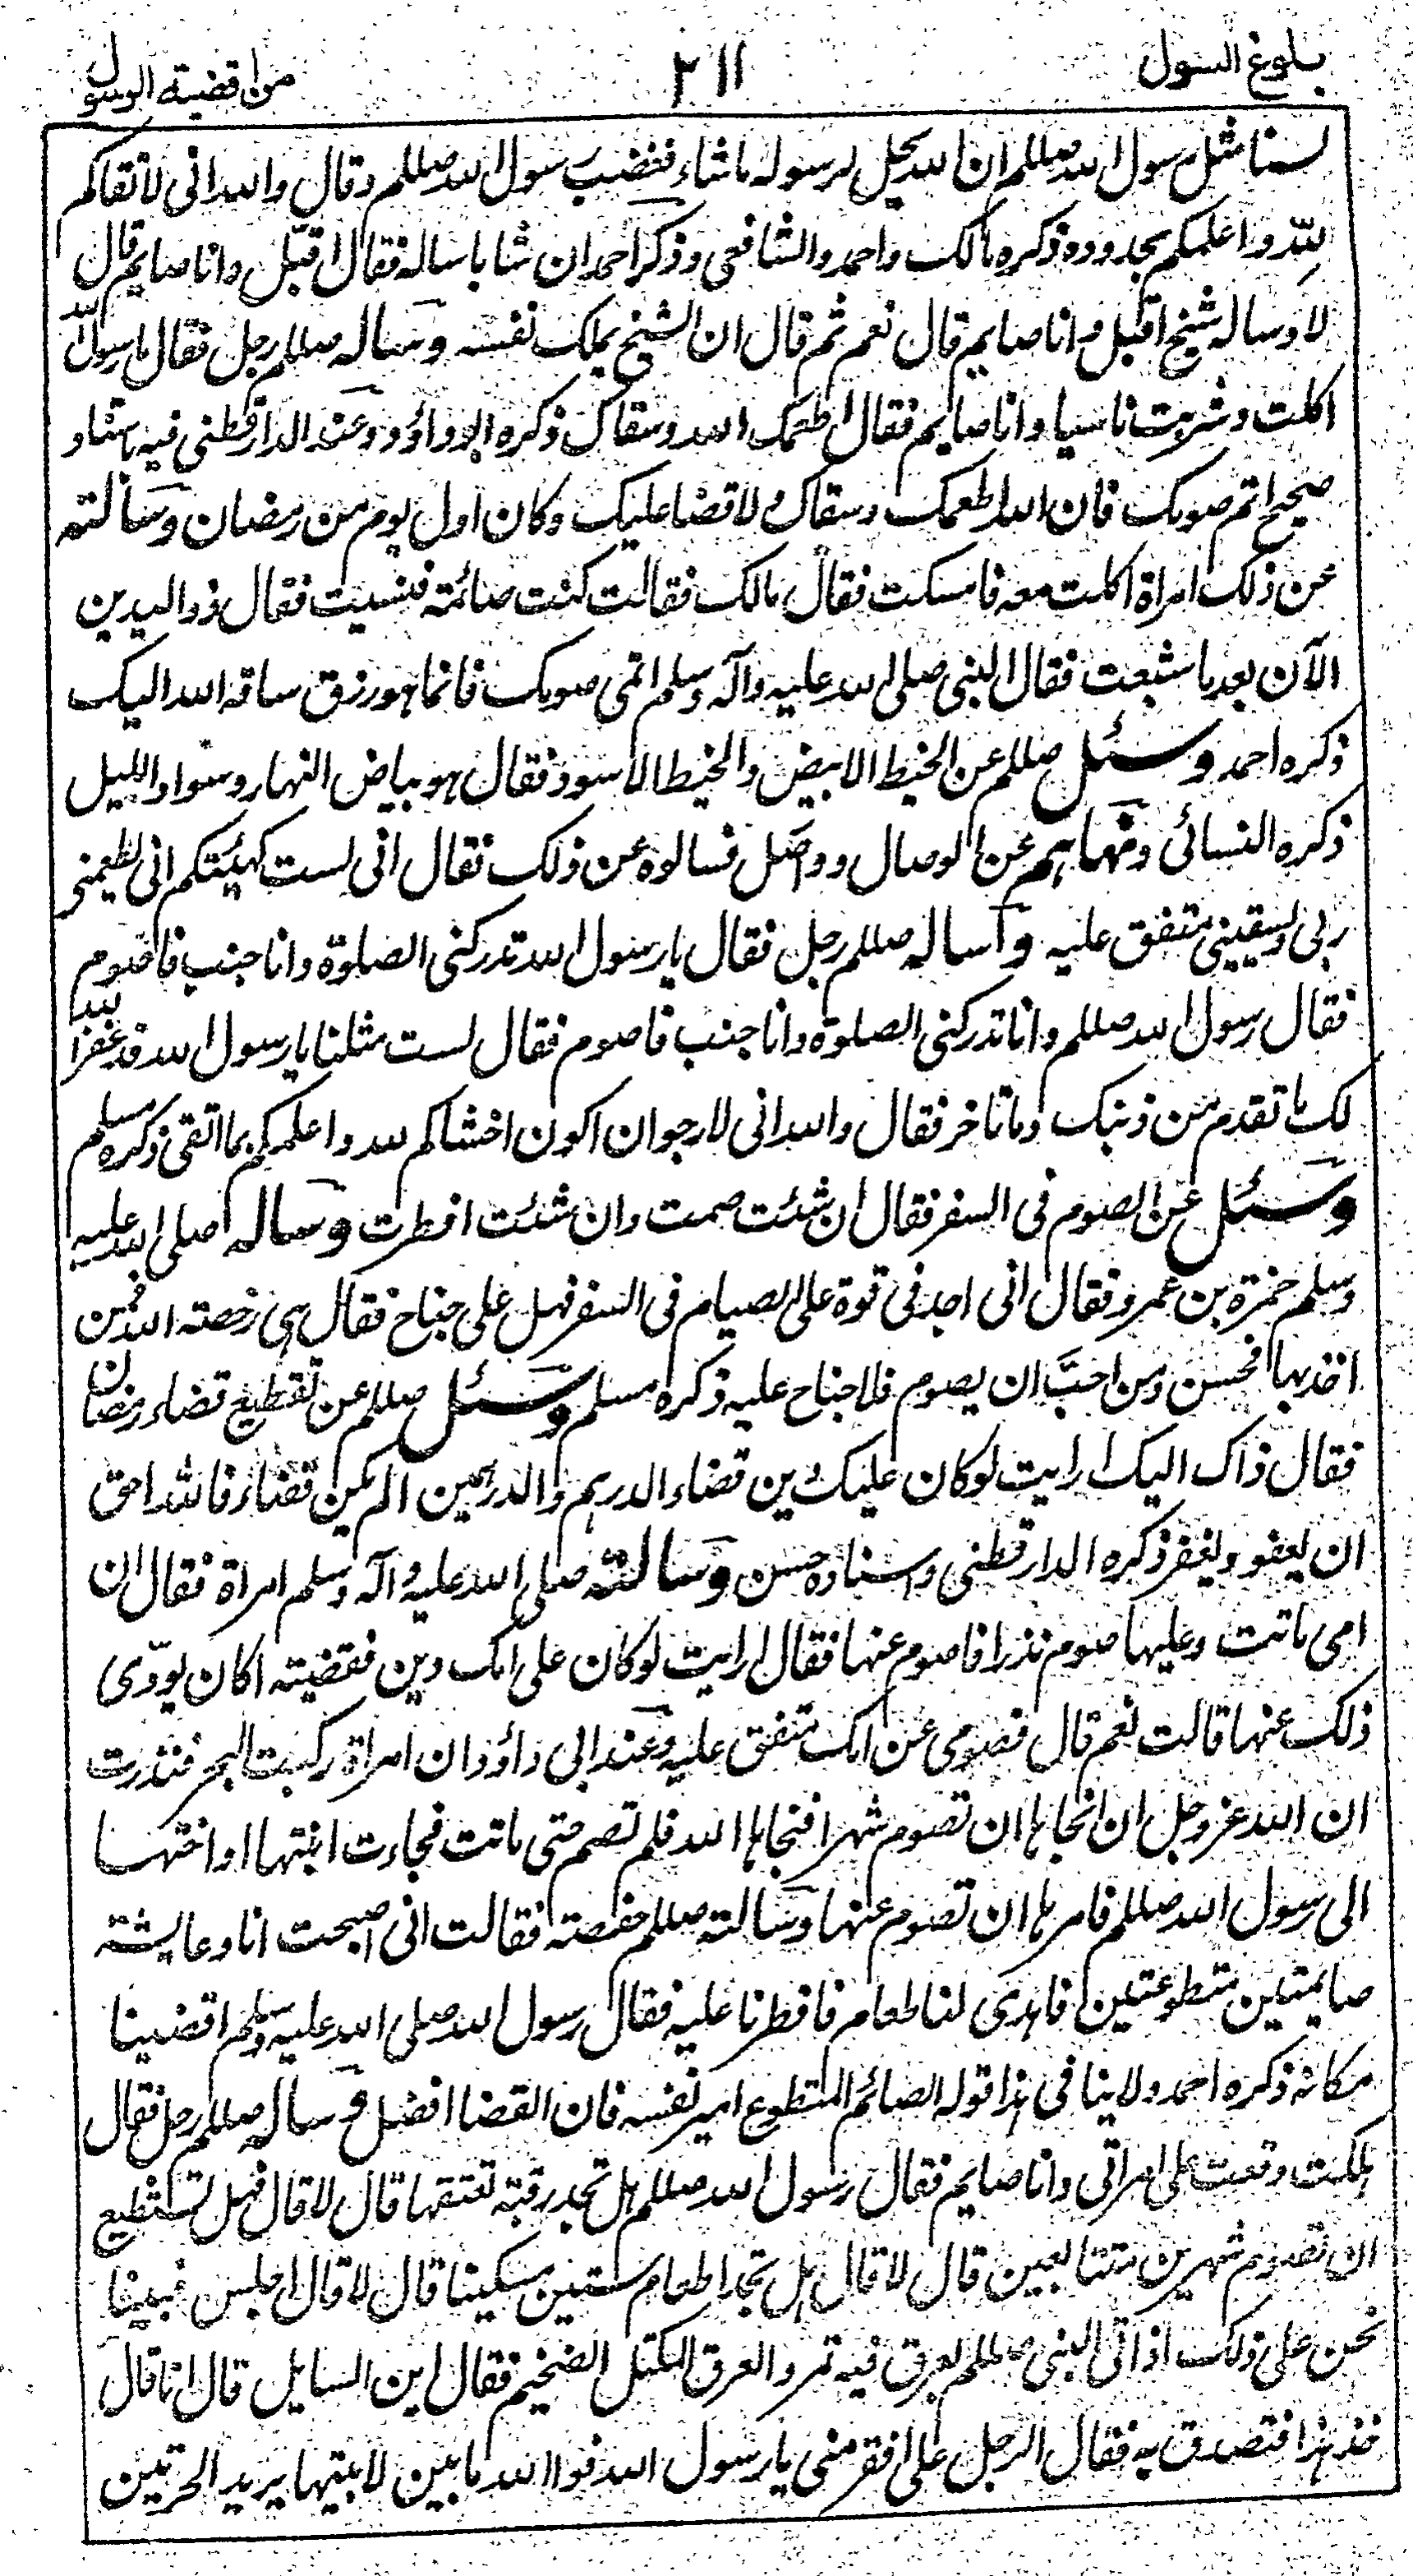 بلوغ السول
٢١١
من اقضية الرسول
لسنا مثل رسول الله صللم ان الله يحل لرسوله ما شاء فغضب رسول الله صللم وقال والله انى لاتقاكم
لله واعلمكم بحدوده ذكره مالك واحمد والشافعى وذكر احمد ان شابا ساله فقال اقبّل وانا صايم قال
لا وساله شيخ اقبل وانا صايم قال نعم ثم قال ان الشيخ يملك نفسه وساله صللم رجل فقال يا رسول الله
اكلت وشربت ناسيا وانا صايم فقال اطعمك الله وسقاك ذكره ابو داؤد وعند الدارقطنى فيه باسناد
صحيح اتم صومك فان الله اطعمك وسقاك ولا قضا عليك وكان اول يوم من رمضان وسألته
عن ذلك امراة اكلت معه فامسكت فقال مالك فقالت كنت صائمة فنسيت فقال ذو اليدين
الآن بعد ما شبعت فقال النبى صلى الله عليه وآله وسلم اتمى صومك فانما هو رزق ساقه الله اليك
ذكره احمد وسئل صللم عن الخيط الابيض والخيط الاسود فقال هو بياض النهار وسواد الليل
ذكره النسائى ونهاهم عن الوصال وواصل فسالوه عن ذلك فقال انى لست كهيئتكم انى يطعمنى
ربى ويسقينى متفق عليه وأساله صللم رجل فقال يا رسول الله تدركنى الصلوة وانا جنب فاصوم
فقال رسول الله صللم وانا تدركنى الصلوة وانا جنب فاصوم فقال لست مثلنا يا رسول الله قد غفر الله
لك ما تقدم من ذنبك وما تاخر فقال والله انى لارجو ان اكون اخشاكم لله واعلمكم بما اتقى ذكره مسلم
وسئل عن الصوم فى السفر فقال ان شئت صمت وان شئت افطرت وساله صلى الله عليه
وسلم حمزة بن عمرو فقال انى اجد فى قوة على الصيام فى السفر فهل على جناح فقال هى رخصة الله فمن
اخذ بها فحسن ومن احبّ ان يصوم فلا جناح عليه ذكره مسلم وسئل صللم عن تقطيع قضاء رمضان
فقال ذاك اليك ارايت لو كان عليك دين قضاء الدرهم والدرهمين الم يكن قضاء فالله احق
ان يعفو ويغفر ذكره الدارقطنى واسناده حسن وسالته صلى الله عليه وآله وسلم امراة فقال ان
امى ماتت وعليها صوم نذر افاصوم عنها فقال ارايت لو كان على امك دين فقضيته اكان يودّى
ذلك عنها قالت نعم قال فصومى عن امك متفق عليه وعند ابى داؤد ان امراة ركبت البحر فنذرت
ان الله عز وجل ان انجاها ان تصوم شهرا فنجاها الله فلم تصم حتى ماتت فجاءت ابنتها او اختها
الى رسول الله صللم فامرها ان تصوم عنها وسالته صللم حفصة فقالت انى اصبحت انا وعايشة
صايمتين متطوعتين فاهدى لنا طعام فافطرنا عليه فقال رسول الله صلى الله عليه وسلم اقضينا
مكانه ذكره احمد ولا ينا فى هذا قوله الصائم المتطوع امير نفسه فان القضا افضل وساله صللم رجل فقال
هلكت وقعت على امراتى وانا صايم فقال رسول الله صللم هل تجد رقبة تعتقها قال لا قال فهل تستطيع
ان تصوم شهرين متتابعين قال لا قال هل تجد اطعام ستين مسكينا قال لا قال اجلس فبينا
نحن على ذلك اذ اتى النبى صللم بعرق فيه تمر والعرق المكتل الضخيم فقال اين السايل قال انا قال
خذ هذا فتصدق به فقال الرجل على افقر منى يا رسول الله فوالله ما بين لابيتها يريد الحرتين